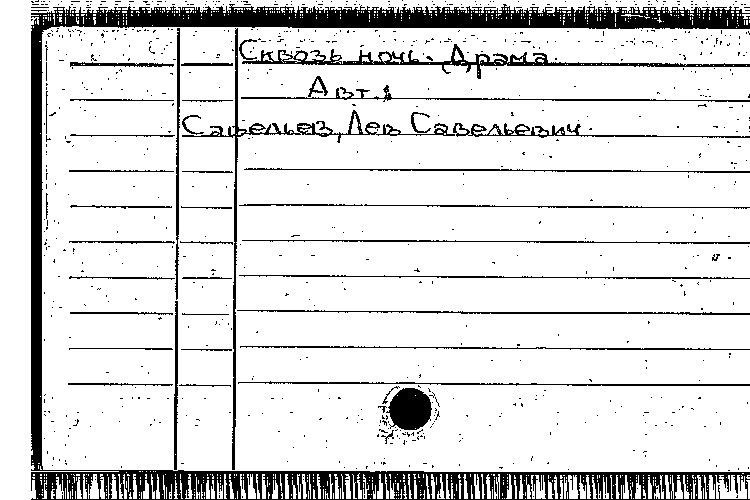 Сквозь ночь. Драма.
Авт.:
Савельев, Лев Савельевич.